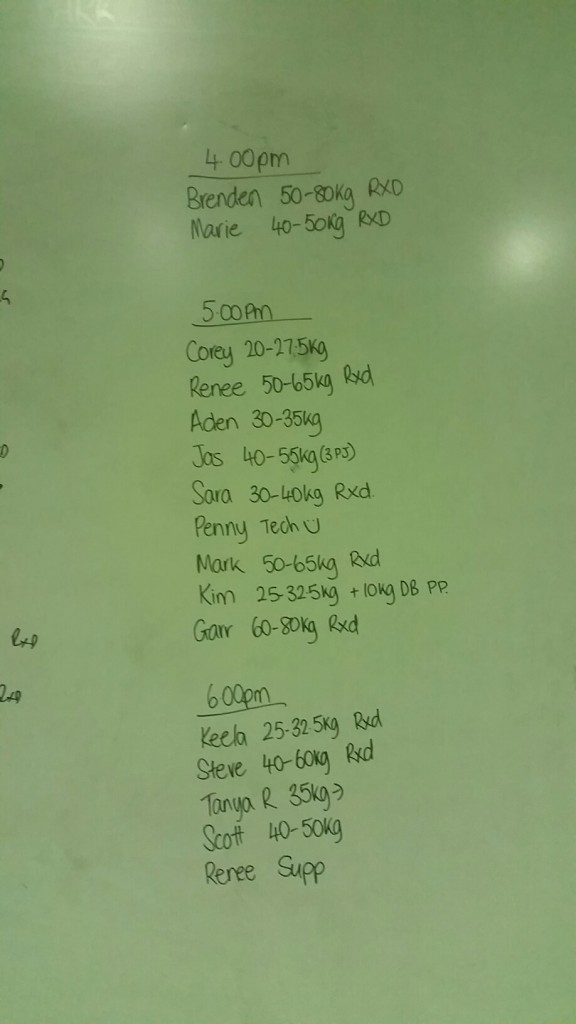 4.00pm
Brenden 50-80kg RXD
Marie 40-50kg RXD
5.00pm
Corey 20-27.5kg
Renee 50-65kg Rxd
Aden 30-35kg
Jas 40-55kg (3PJ)
Sara 30-40kg Rxd.
Penny Tech
Mark 50-65kg Rxd
Kim 25-32.5kg + 10kg DB PP.
Garr 60-80kg Rxd
6.00pm
Keela 25-32.5kg Rxd
Steve 40-60kg Rxd
Tanya R 35kg→
Scott 40-50kg
Renee Supp
RXD
RXD